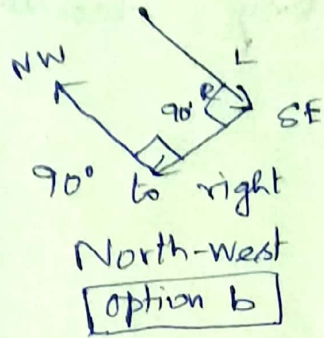 NW
L
90° R
SE
90° to right
North-west
option b